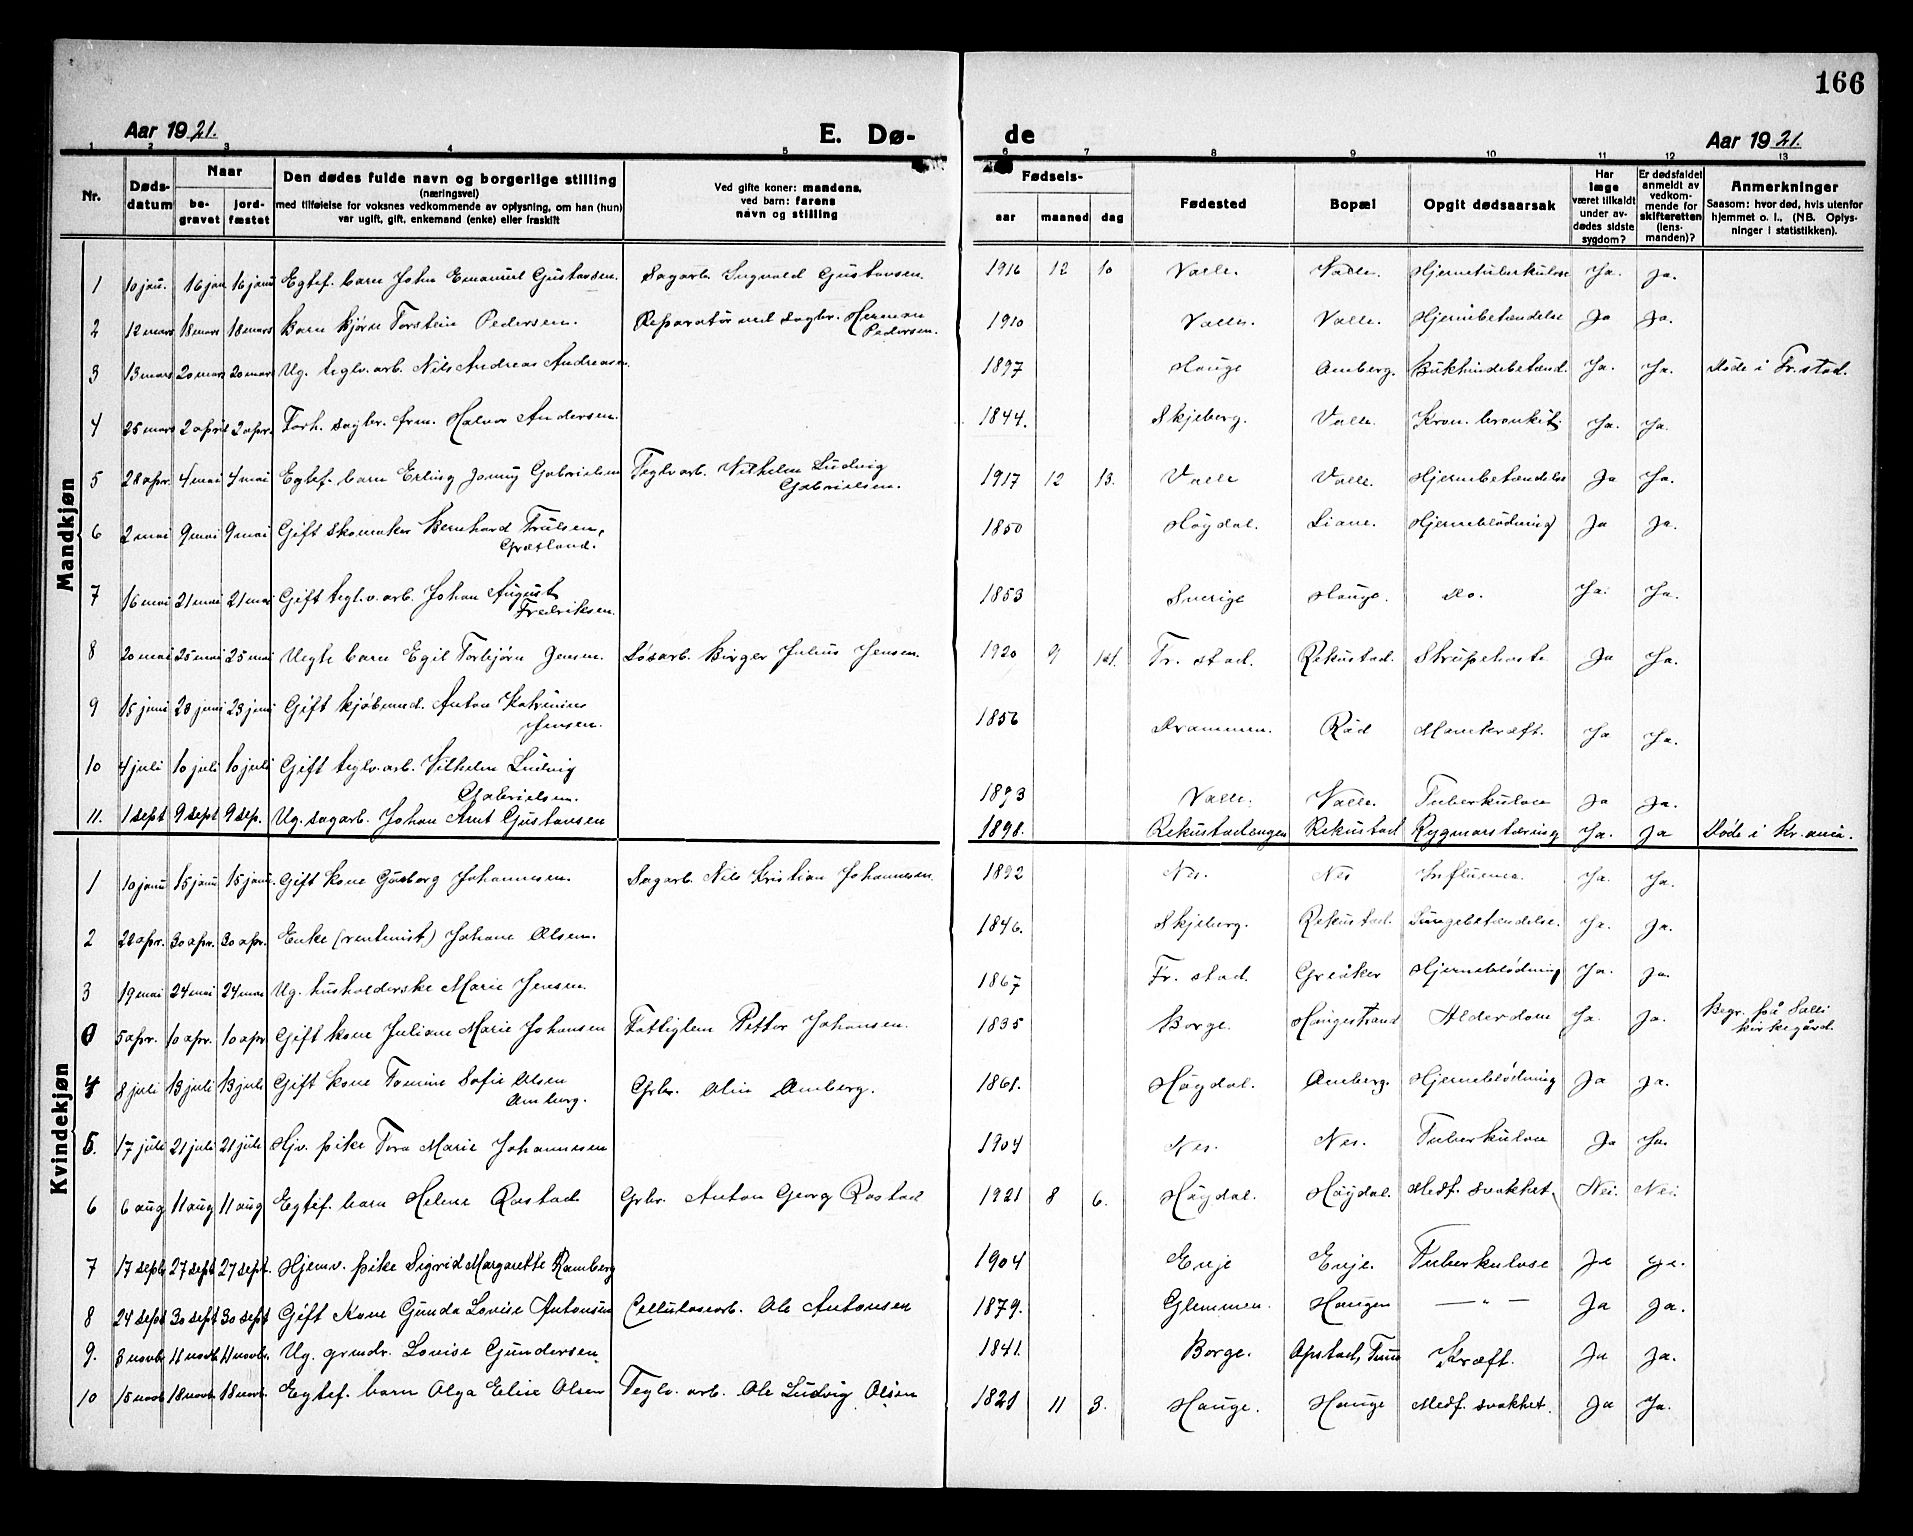 166
Aar 1921.
E. Dø-
de
Aar 1921.
1 2 3 4 5 6 7 8 9 10 11 12 13
Nr. | Døds-datum | Naar be-gravet | jord-fæstet | Den dødes fulde navn og borgerlige stilling (næringsvei) med tilføielse for voksnes vedkommende av oplysning, om han (hun) var ugift, gift, enkemand (enke) eller fraskilt | Ved gifte koner: mandens, ved barn: farens navn og stilling | Fødsels- aar | maaned | dag | Fødested | Bopæl | Opgit dødsaarsak | Har læge været tilkaldt under av-dødes sidste sygdom? | Er dødsfaldet anmeldt av vedkom-mende for skifteretten (lens-manden)? | Anmerkninger Saasom: hvor død, hvis utenfor hjemmet o. l., (NB. Oplys-ninger i statistikken).
Mandkjøn
1 | 10 janu. | 16 jan | 16 janu | Egtef. barn John Emanuel Gustavsen. | Sagarb. Sigvald Gustavsen. | 1916 | 12 | 10 | Valle. | Valle. | Hjernetuberkulose | Ja. | Ja.
2 | 12 mars | 18 mars | 18 mars | Barn Bjørn Torstein Pedersen. | Reparatør ved sagbr. Herman Pedersen. | 1910 | Valle. | Valle. | Hjernebetændelse | Ja | Ja.
3 | 13 mars | 20 mars | 20 mars | Ug. teglv. arb. Nils Andreas Andreasen. | 1897 | Hauge | Amberg. | Bukhindebetænd. | Ja. | Ja. | Døde i Fr.stad.
4 | 25 mars | 2 april | 2 apr. | Forh. sagbr. frm. Halvor Andersen. | 1844. | Skjeberg. | Valle. | Kron. bronkit. | Ja. | Ja.
5 | 28 apr. | 4 mai | 4 mai | Egtef. barn Erling Jonny Gabrielsen | Teglv arb. Vilhelm Ludvig Gabrielsen. | 1917 | 12 | 13. | Valle | Valle. | Hjernebetændelse | Ja | Ja.
6 | 2 mai | 9 mai | 9 mai | Gift skomaker Bernhard Trulsen, Grætland. | 1850 | Høgdal. | Liane. | Hjerneblødning | Ja | Ja.
7 | 16 mai | 21 mai | 21 mai | Gift tegl.v. arb. Johan August Fredriksen. | 1853 | Sverige | Hauge. | Do. | Ja. | Ja.
8 | 20 mai | 25 mai | 25 mai | Uegte barn Egil Torbjørn Jensen. | Løsarb. Birger Julius Jensen. | 1920 | 9 | Fr. stad. | Rekustad. | Strupehoste | Ja | Ja.
9 | 15 juni | 23 juni | 23 juni | Gift kjøbmd. Anton Katrinius Jensen. | 1856 | Drammen. | Råd | Mavekræft. | Ja | Ja.
10 | 4 juli | 10 juli | 10 juli | Gift teglv. arb. Vilhelm Ludvig Gabrielsen. | 1893 | Valle. | Valle. | Tuberkulose | Ja | Ja.
11. | 1 sept | 9 sept | 9 sep. | Ug. sagarb. Johan Arnt Gustavsen | 1898. | Rekustadengen | Rekustad | Rygmarstæring | Ja. | Ja | Døde i Kr.ania.
Kvindekjøn
1 | 10 janu | 15 janu | 15 janu. | Gift kone Guborg Johannesen. | Sagarb. Nils Kristian Johannesen. | 1892 | Nes. | Nes | Influensa. | Ja. | Ja.
2 | 28 apr. | 30 apr. | 30 apr. | Enke (rentenist) Johane Olsen. | 1846. | Skjeberg. | Rekustad. | Lungebetændelse. | Ja. | Ja.
3 | 19 mai | 24 mai | 24 mai | Ug. husholderske Marie Jensen. | 1867 | Fr. stad | Greåker | Hjerneblødning | Ja. | Ja.
0 | 5 apr. | 10 apr. | 10 apr | Gift kone Juliane Marie Johansen | Fattiglem Petter Johansen. | 1835 | Borge. | Haugestrand | Alderdom | Ja. | Ja. | Begr. på Solli kirkegård.
4 | 8 juli | 13 juli | 13 juli | Gift kone Tomine Sofie Olsen Amberg. | Grbr. Olin Amberg. | 1861. | Høgdal. | Amberg. | Hjerneblødning | Ja | Ja.
5. | 17 juli | 21 juli | 21 juli | Hjv. pike Tora Marie Johannesen | 1904 | Nes. | Nes. | Tuberkulose | Ja | Ja.
6 | 6 aug | 11 aug | 11 aug | Egtef. barn Helene Rostad | Grbr. Anton Georg Rostad | 1921 | 8 | 6. | Høgdal. | Høgdal. | Medf. svakhet | Nei. | Nei.
7 | 17 sept | 27 sept | 27 sept. | Hjemv. pike Sigrid Margarethe Ramberg | 1904 | Enje | Enje. | Tuberkulose | Ja | Ja.
8 | 24 sept | 30 sept | 30 sept | Gift Kone Gunda Lovise Antonsen | Cellulosearb. Ole Antonsen | 1879. | Glemmen. | Haugen | — " — | Ja | Ja.
9. | 3 novbr | 11 novbr | 11 novbr. | Ug. grmdr. Lovise Gundersen. | 1841. | Borge. | Opstad, Tune | Kræft. | Ja | Ja.
10 | 15 novb | 18 novb. | 18 novb. | Egtef. barn Olga Elise Olsen | Teglv. arb. Ole Ludvig Olsen | 1821 | 11 | 3. | Hauge. | Hauge | Medf. svakhet. | Ja | Ja.